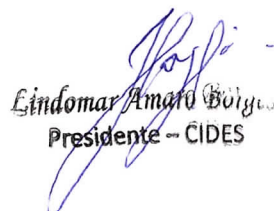 Lindomar Amaro Borges
Presidente – CIDES